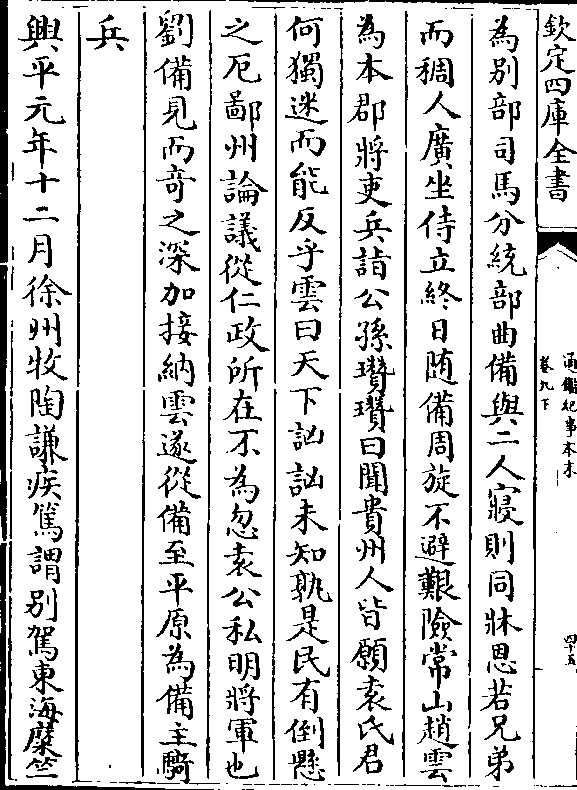 欽定四庫全書
通鑑紀事本末
卷九下
四十五
為別部司馬分統部曲備與二人寢則同牀恩若兄弟
而稠人廣坐侍立終日隨備周旋不避艱險常山趙雲
為本郡將吏兵詣公孫瓚瓚曰聞貴州人皆願袁氏君
何獨迷而能反乎雲曰天下訩訩未知孰是民有倒懸
之厄鄙州論議從仁政所在不為忽袁公私明將軍也
劉備見而奇之深加接納雲遂從備至平原為備主騎
兵
興平元年十二月徐州牧陶謙疾篤謂別駕東海糜竺